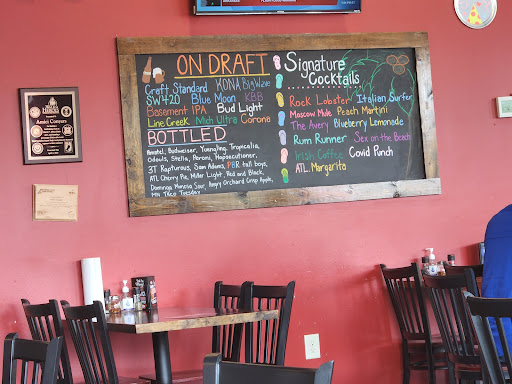 ON DRAFT
Craft Standard KONA Big Wave
SW420 Blue Moon KBB
Basement IPA Bud Light
Line Creek Mich Ultra Corona
BOTTLED
Budweiser, Tropicalia,
Odouls, Stella, Peroni, Hopsecutioner,
3T Rapturous, Sam Adams, PBR tall boys,
ATL Cherry Pie, Miller Light, Red and Black,
Domingo Monoso Sour, Angry Orchard Crisp Apple,
Taco Tuesday
Signature
Cocktails
Rock Lobster Italian Surfer
Moscow Mule Peach Martini
The Avery Blueberry Lemonade
Rum Runner Sex on the Beach
Irish Coffee Covid Punch
ATL Margarita